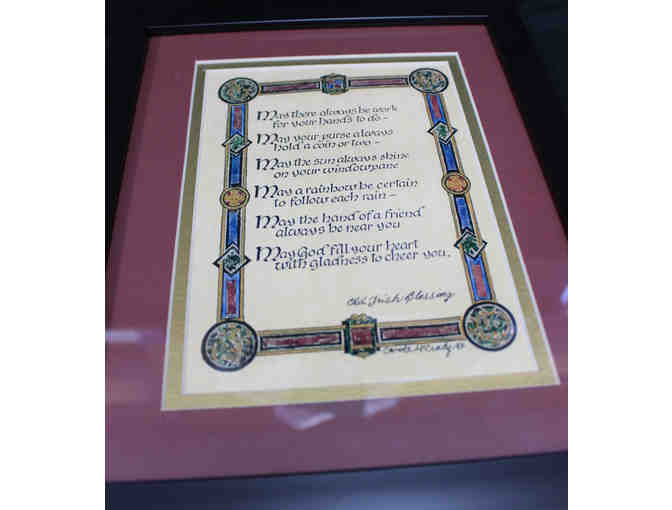 May there always be work
for your hands to do –
May your purse always
hold a coin or two –
May the sun always shine
on your windowpane
May a rainbow be certain
to follow each rain –
May the hand of a friend
always be near you
May God fill your heart
with gladness to cheer you.
Old Irish Blessing